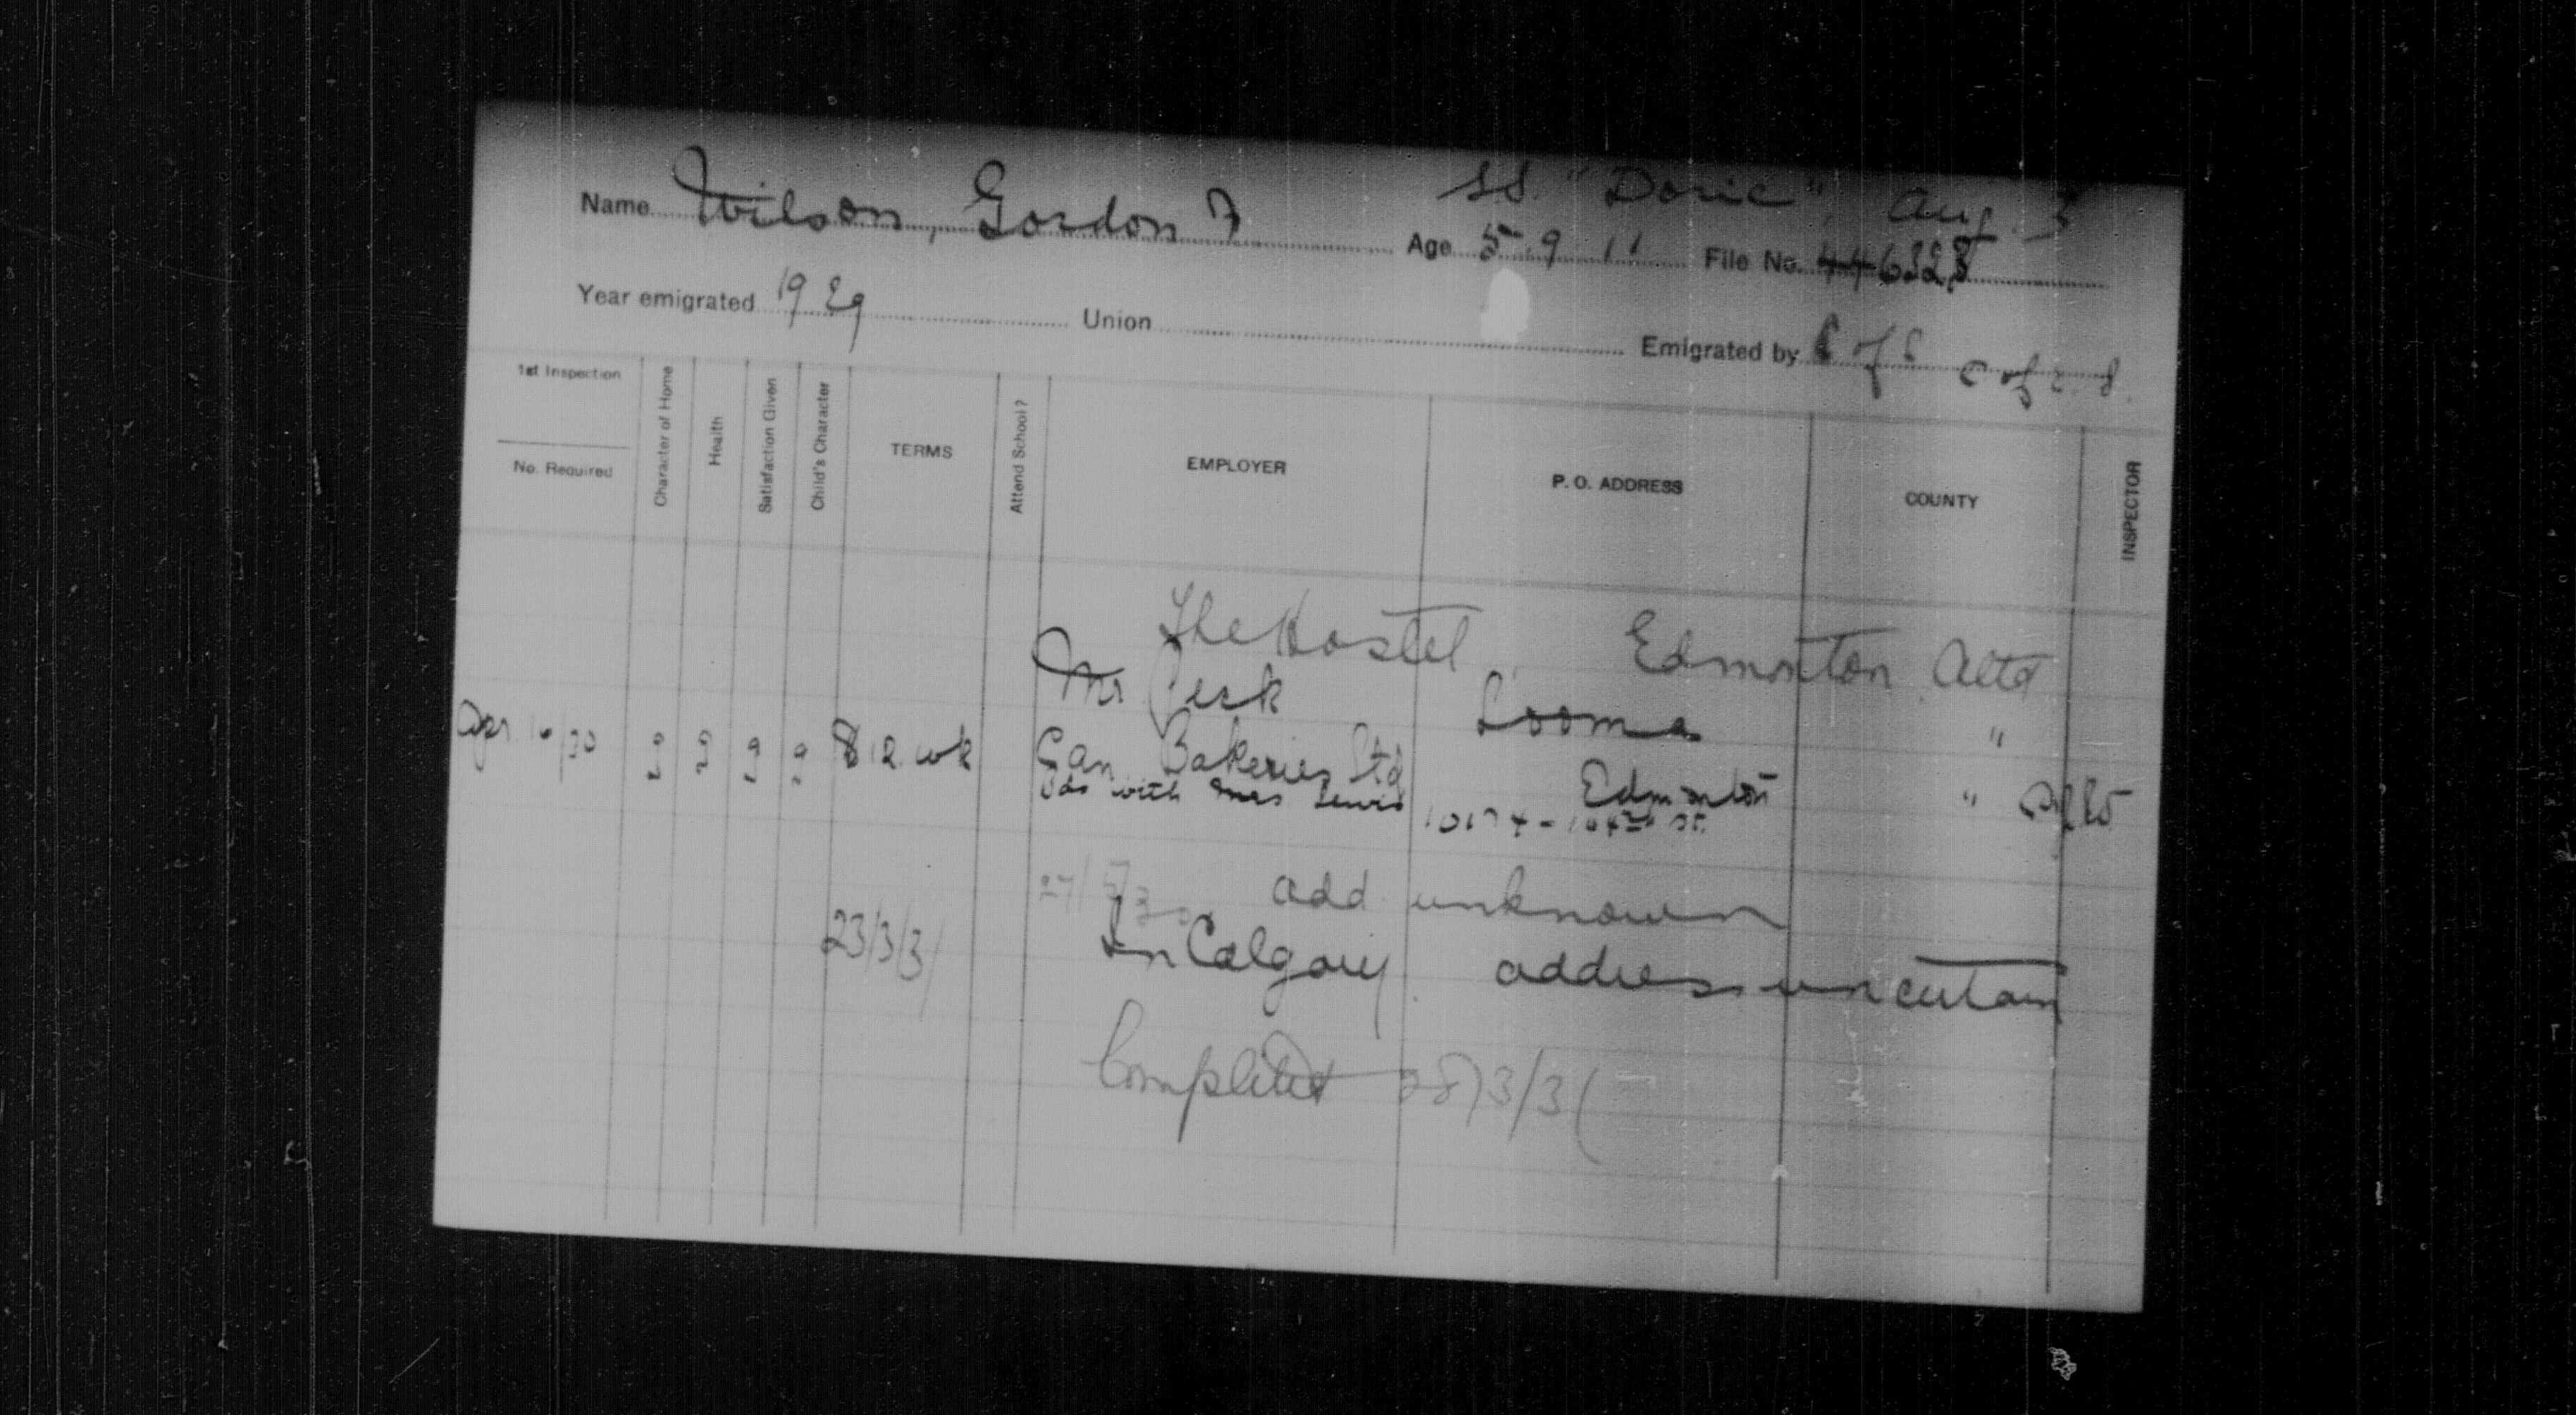 SS. "Doric", Aug. 3
Name Wilson, Gordon F Age 5.9.11 File No. 446328
Year emigrated 1929 Union Emigrated by C of E C of E. S.
1st Inspection
No. Required
Character of Home
Health
Satisfaction Given
Child's Character
TERMS
Attend School?
EMPLOYER
P. O. ADDRESS
COUNTY
INSPECTOR
The Hostel, Edmonton Alta
Mr Peck Looma "
Apr 16/30 g g g g $12 wk Can. Bakeries Ltd Edmonton "
Bds with Mrs Lewis 10174 - 104th St.
27/5/30 add unknown
23/3/31 In Calgary. address uncertain
Completed 28/3/31